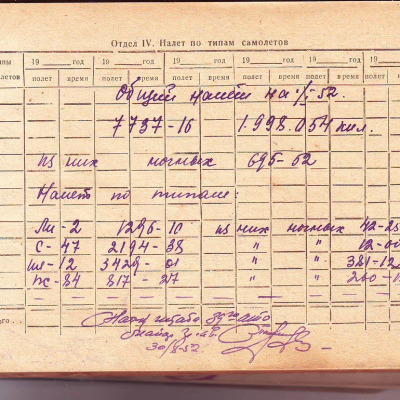 Отдел IV. Налет по типам самолетов
19 год 19 год 19 год 19 год 19 год 19
полет время полет время полет время полет время полет время полет
Общий налёт на 1/I-52.
7737-16 1.998.054 кил.
из них ночных 695-52
Налёт по типам:
Ли-2 1296-10 из них ночных 42-25
С-47 2194-38 " " 12-00
ил-12 3429-01 " " 381-12
817-27 " "
Нач штаба
30/